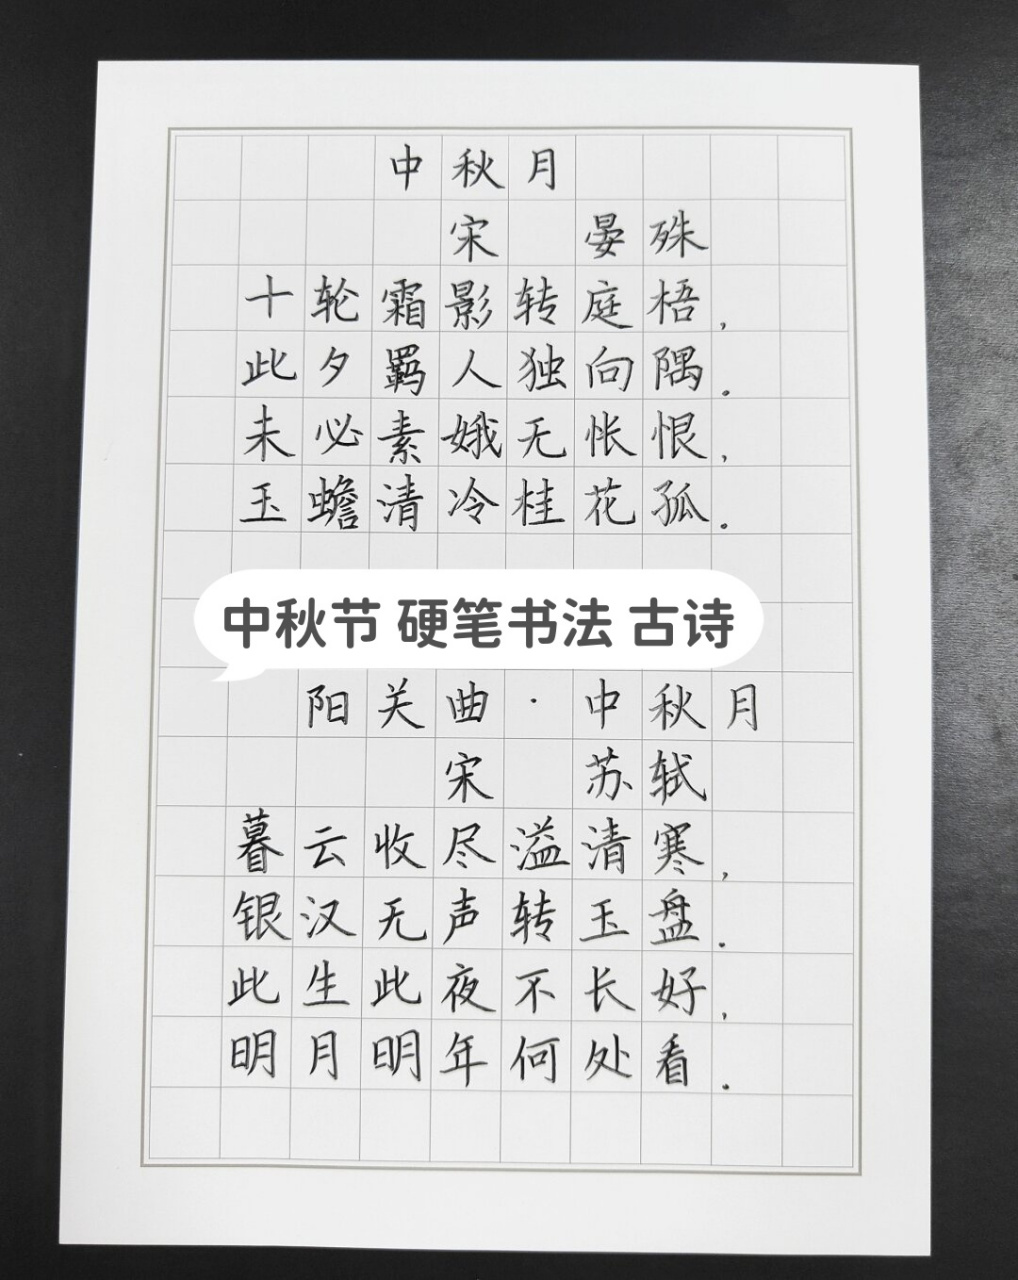 中秋月
宋 晏殊
十轮霜影转庭梧，
此夕羁人独向隅.
未必素娥无怅恨，
玉蟾清冷桂花孤.
中秋节 硬笔书法 古诗
阳关曲·中秋月
宋 苏轼
暮云收尽溢清寒，
银汉无声转玉盘.
此生此夜不长好，
明月明年何处看.